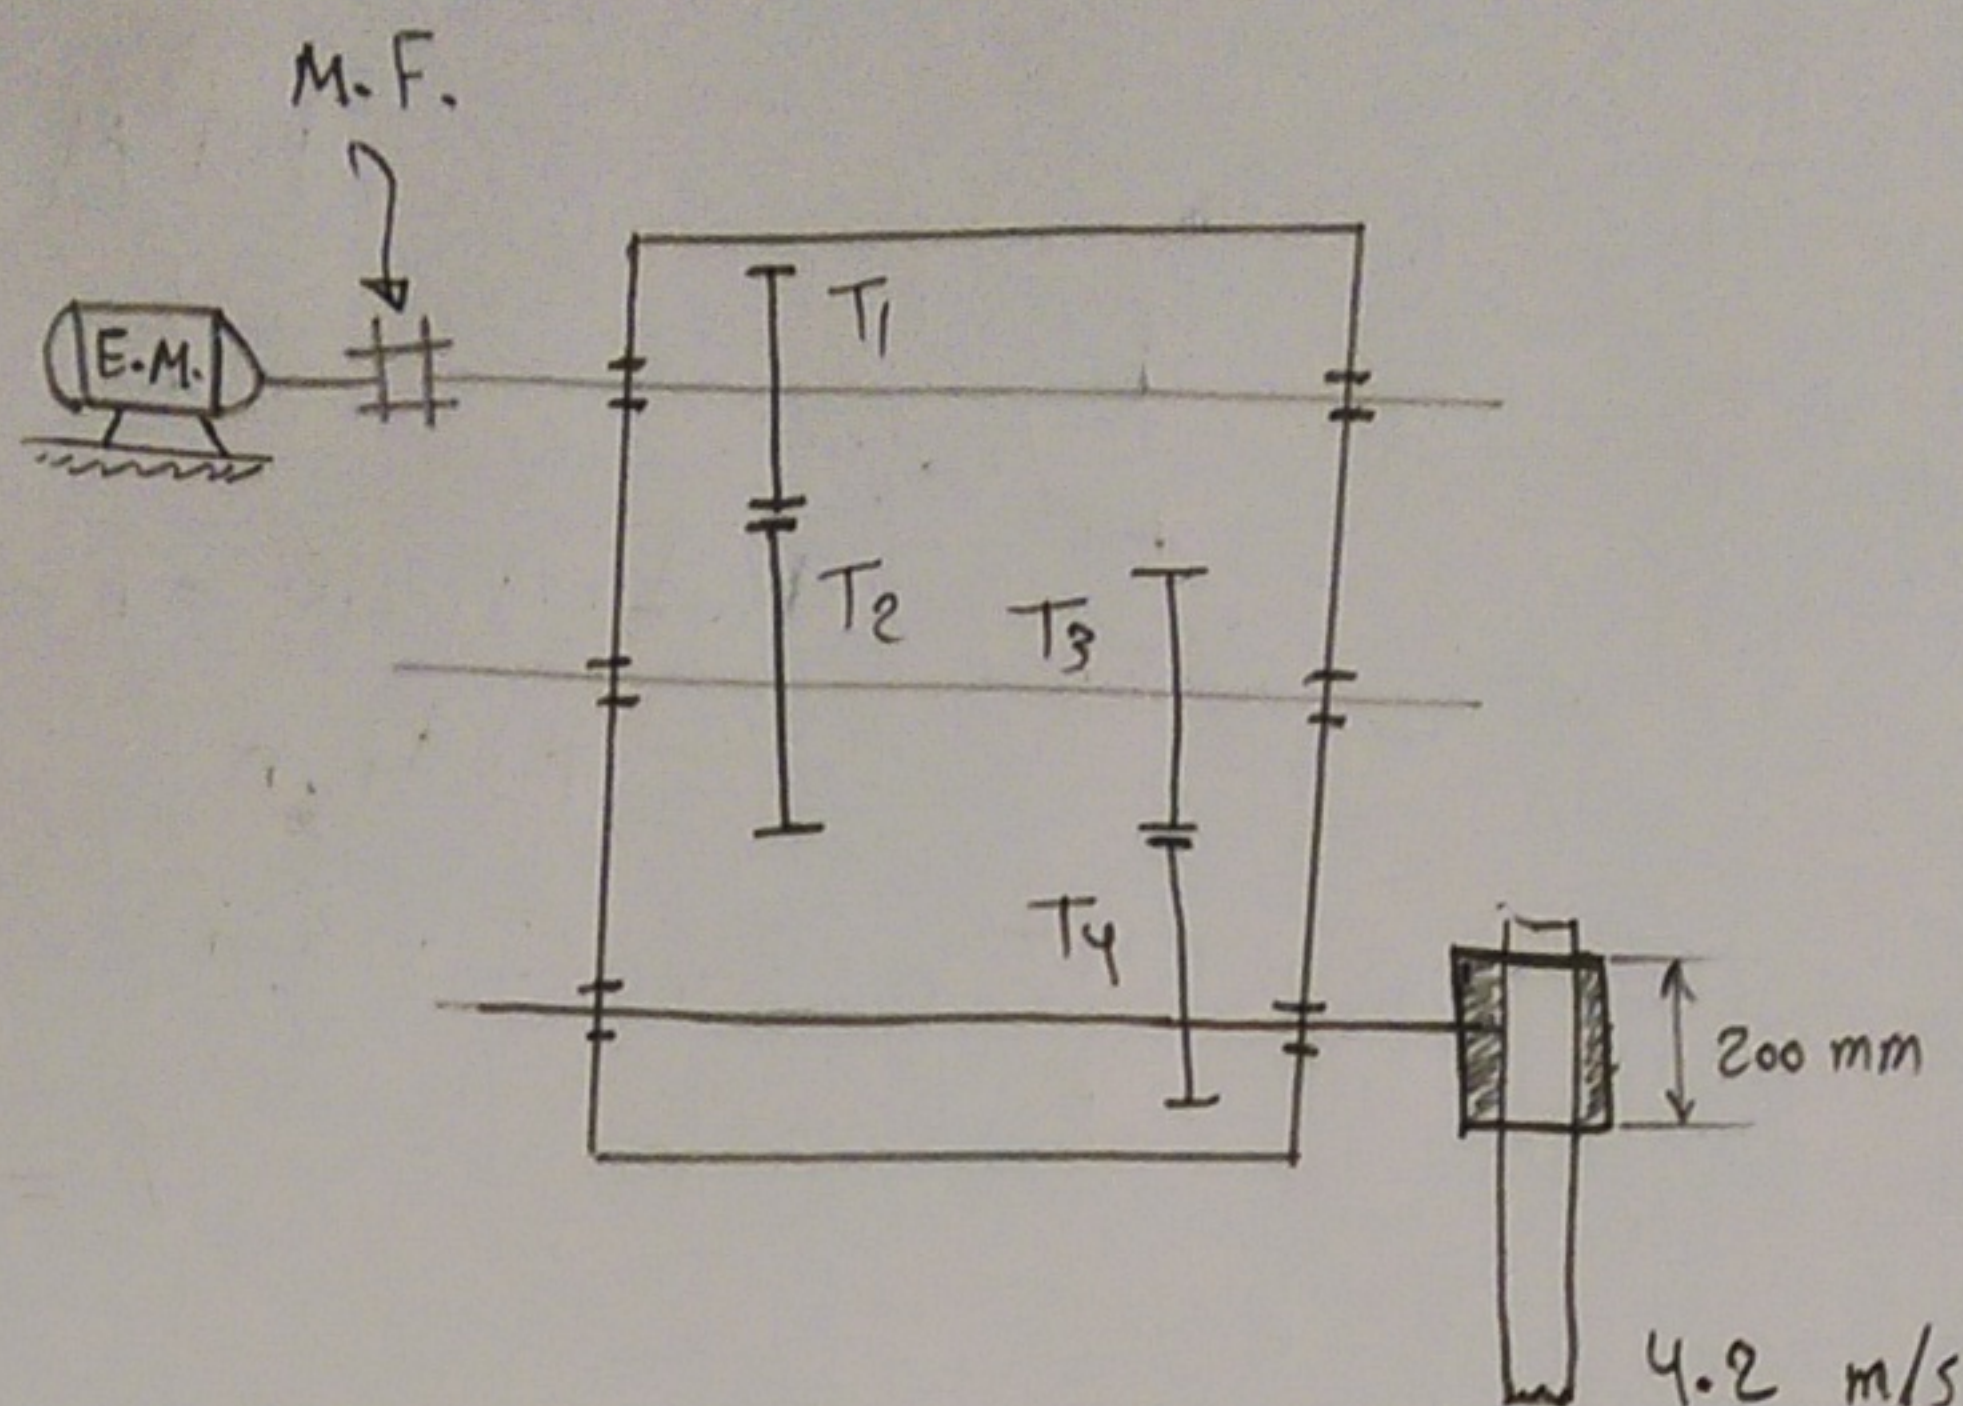 M.F.
E.M.
T1
T2
T3
T4
200 mm
4.2 m/s